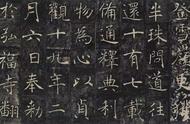 登雪嶺更獲
半珠問道往
還十有七載
備通釋典利
物為心以貞
觀十九年二
月六日奉勑
於弘福寺翻